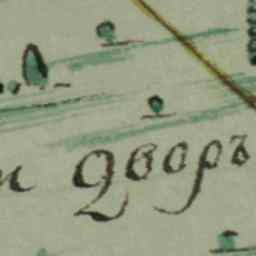 и дворъ